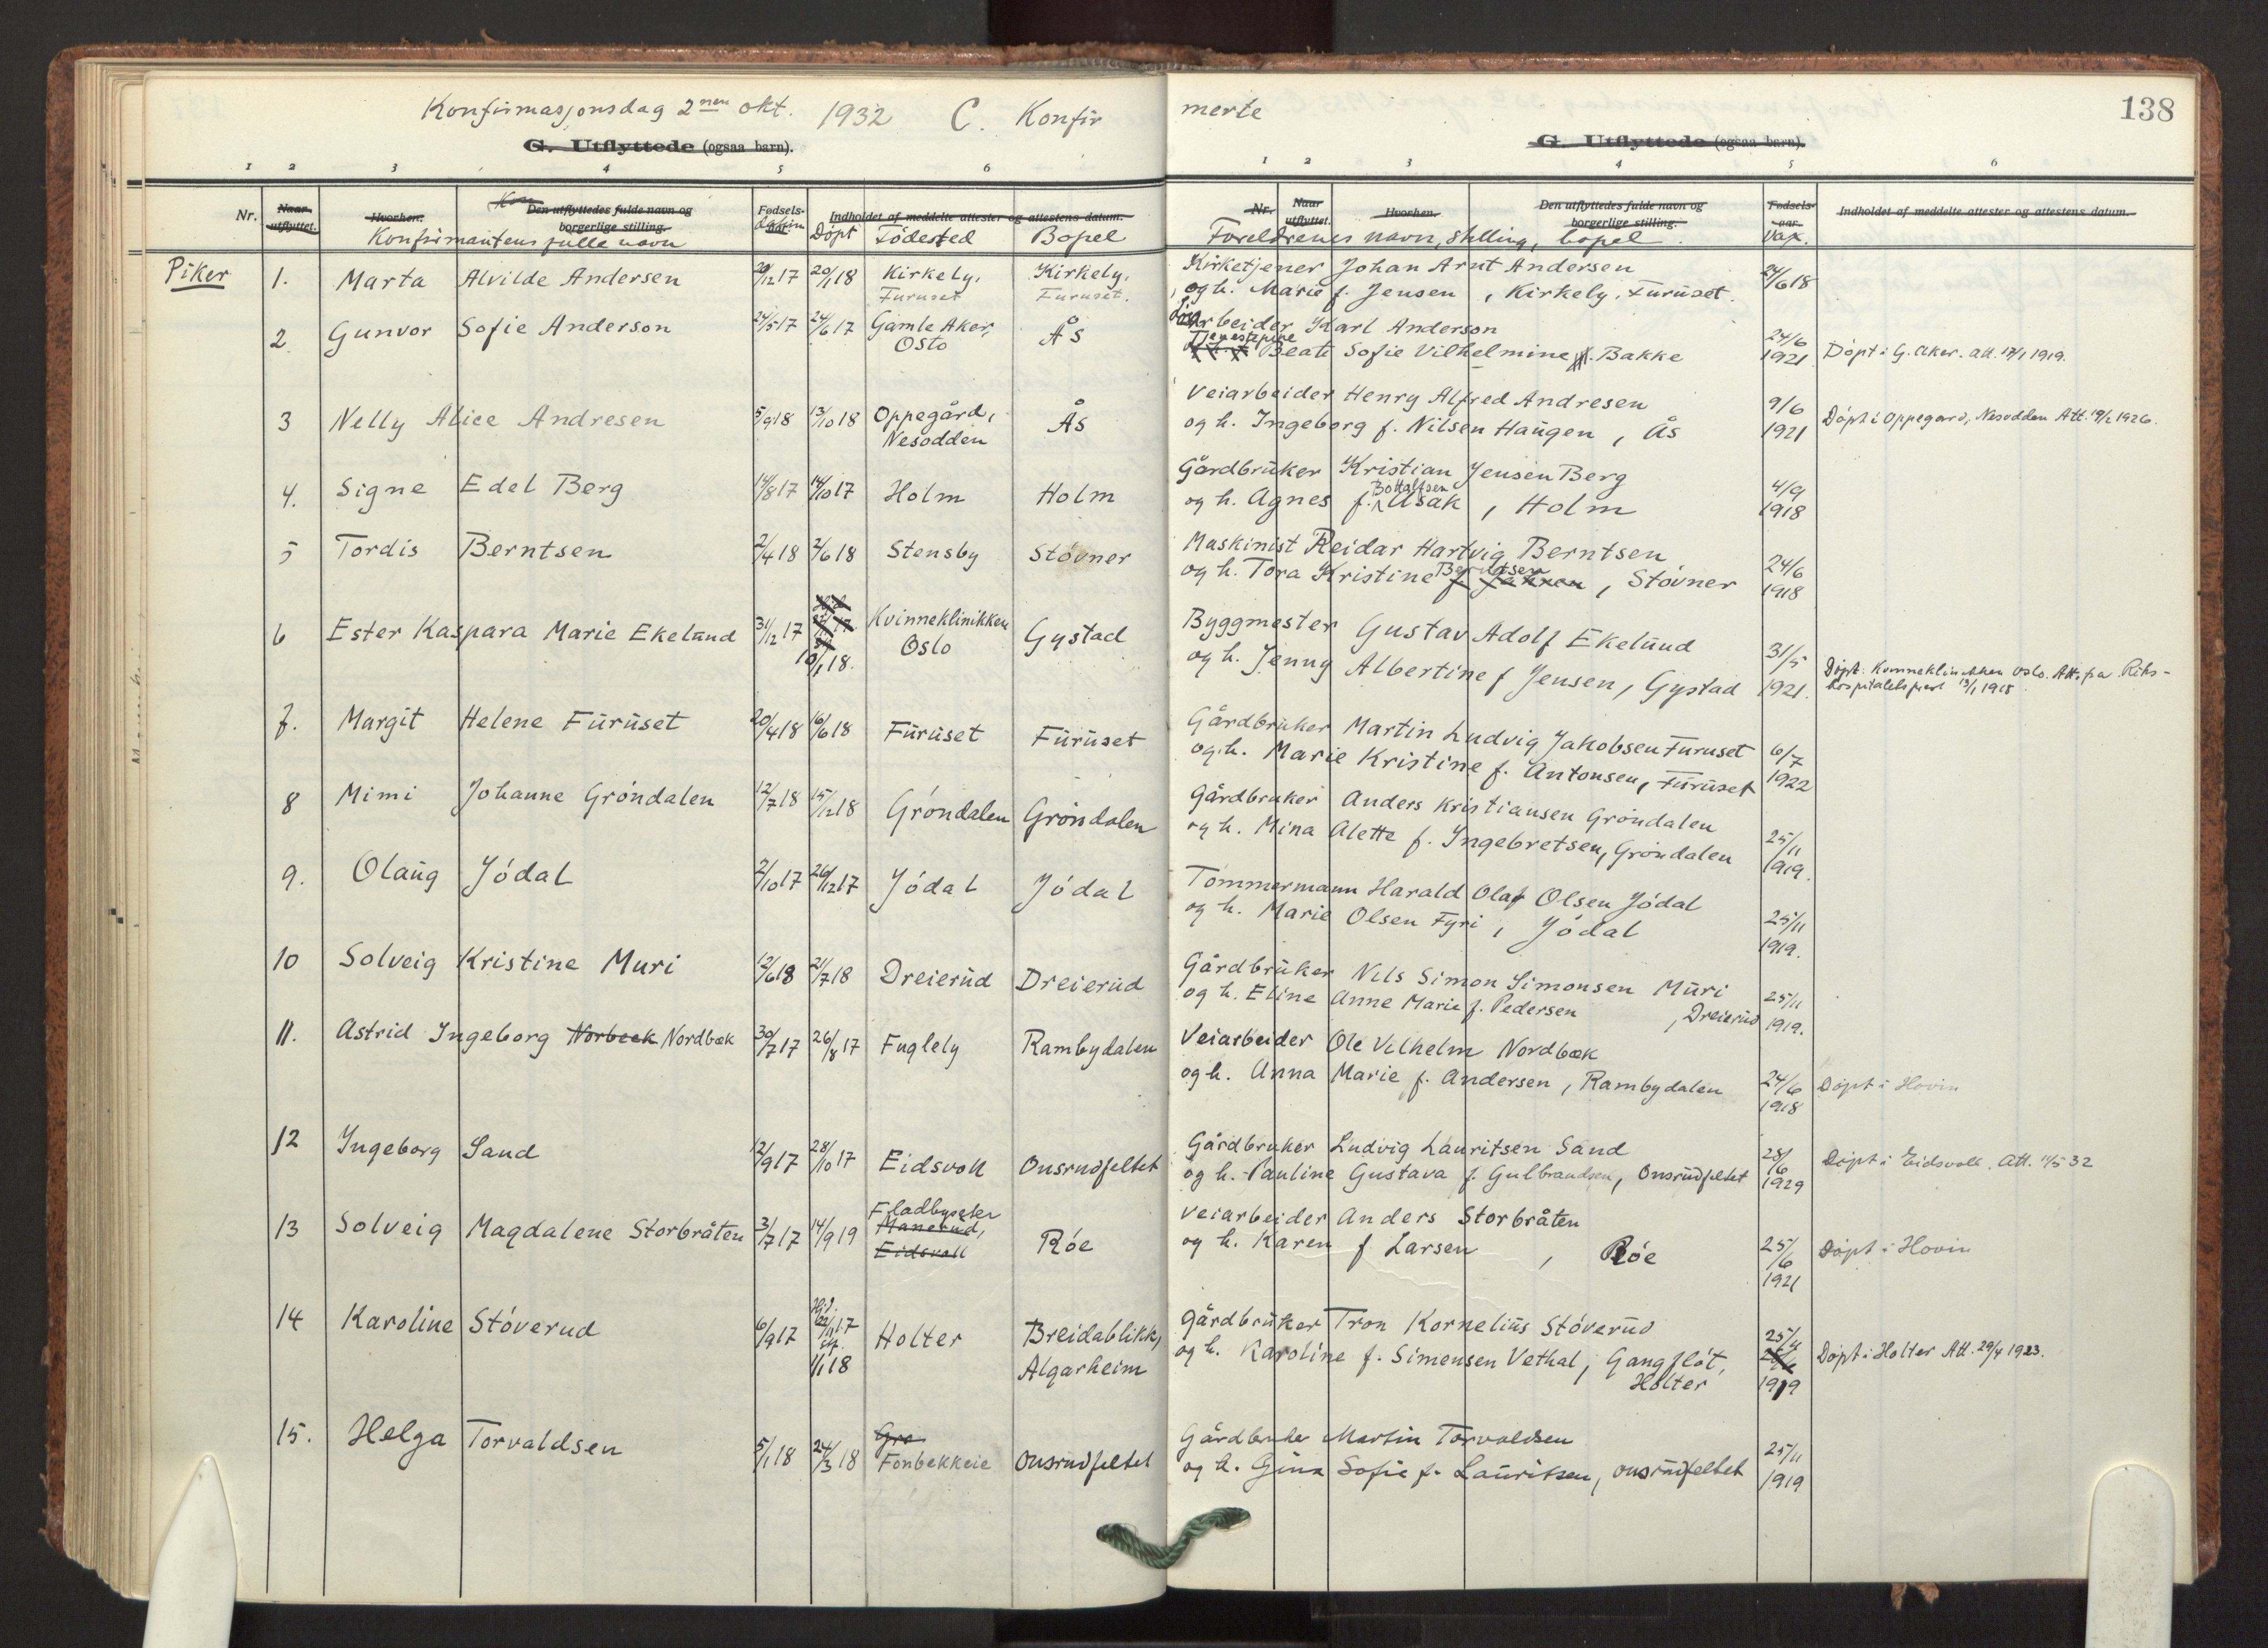 Konfirmasjonsdag 2nen okt. 1932 C. Konfir
G. Utflyttede (ogsaa barn).
1 2 3 4 5 6
Nr. Naar utflyttet. Hvorhen. Den utflyttedes fulde navn og borgerlige stilling. Fødsels- Indholdet af meddelte attester og attestens datum.
Konfirmantens fulle navn Döpt Födested Bopel
Piker
1. Marta Alvilde Andersen 29/12 17 20/1 18 Kirkely, Furuset Kirkely, Furuset.
2 Gunvor Sofie Anderson 24/5 17 24/6 17 Gamle Aker, Oslo Ås
3 Nelly Alice Andresen 5/9 18 13/10 18 Oppegård, Nesodden Ås
4. Signe Edel Berg 14/8 17 14/10 17 Holm Holm
5 Tordis Berntsen 2/4 18 2/6 18 Stensby Stövner
6 Ester Kaspara Marie Ekelund 31/12 17 10/1 18. Kvinneklinikken Oslo Gystad
7. Margit Helene Furuset 20/4 18 16/6 18 Furuset Furuset
8 Mimi Johanne Gröndalen 12/7 18 15/12 18 Gröndalen Gröndalen
9. Olaug Jödal 2/10 17 26/12 17 Jödal Jödal
10 Solveig Kristine Muri 12/6 18 21/7 18 Dreierud Dreierud
11. Astrid Ingeborg Norbeek Nordbæk 30/7 17 26/8 17 Fuglely Rambydalen
12 Ingeborg Sand 12/9 17 28/10 17 Eidsvoll Onsrudfeltet
13 Solveig Magdalene Storbråten 3/7 17 14/9 19 Fladbyseter Manerud, Eidsvoll Röe
14 Karoline Stöverud 6/9 17 Hjd. 22/11 17 1/1 18 Holter Breidablikk, Algarheim
15. Helga Torvaldsen 5/1 18 24/3 18 Gro Fonbekkeie Onsrudfeltet
merte
138
G. Utflyttede (ogsaa barn).
1 2 3 4 5 6
Nr. Naar utflyttet. Hvorhen. Den utflyttedes fulde navn og borgerlige stilling. Fødsels- aar. Indholdet af meddelte attester og attestens datum.
Foreldrenes navn, stilling, bopel. Vax.
Kirketjener Johan Arnt Andersen
og h. Marie f. Jensen, Kirkely, Furuset. 24/6 18
Arbeider Karl Anderson
Tjenestepike Beate Sofie Vilhelmine Bakke 24/6 1921 Döpt i G. Aker. att. 17/1 1919.
Veiarbeider Henry Alfred Andresen
og h. Ingeborg f. Nilsen Haugen, Ås 9/6 1921 Döpt i Oppegard, Nesodden Att. 19/2 1926.
Gårdbruker Kristian Jensen Berg
og h. Agnes f. Bottolfsen Åsak, Holm 4/9 1918
Maskinist Reidar Hartvig Berntsen
og h. Tora Kristine Berntsen, Stövner 24/6 1918
Byggmester Gustav Adolf Ekelund
og h. Jenny Albertine f Jensen, Gystad 31/5 1921. Döpt. Kvinneklinikken Oslo. Att. fra Riks-
hospitalets prest 13/1 1918.
Gårdbruker Martin Ludvig Jakobsen Furuset
og h. Marie Kristine f. Antonsen, Furuset 6/7 1922
Gårdbruker Anders Kristiansen Gröndalen
og h. Mina Alette f. Ingebretsen, Gröndalen 25/11 1919.
Tömmermann Harald Olaf Olsen Jödal
og h. Marie Olsen Fyri, Jödal 25/11 1919.
Gårdbruker Nils Simon Simonsen Muri
og h. Eline Anne Marie f. Pedersen, Dreierud 25/11 1919.
Veiarbeider Ole Vilhelm Nordbæk
og h. Anna Marie f. Andersen, Rambydalen 24/6 1918 Döpt i Hovin
Gårdbruker Ludvig Lauritsen Sand
og h. Pauline Gustava f. Gulbrandsen, Onsrudfeltet 28/6 1929 Döpt i Eidsvoll. Att. 11/5 32
Veiarbeider Anders Storbråten
og h. Karen f Larsen, Röe 25/6 1921 Döpt i Hovin
Gårdbruker Tron Kornelius Stöverud
og h. Karoline f. Simensen Vethal, Gangflöt, Holter 25/11 1919 Döpt i Holter Att. 29/4 1923.
Gårdbruker Martin Torvaldsen
og h. Gina Sofie f. Lauritsen, Onsrudfeltet 25/11 1919